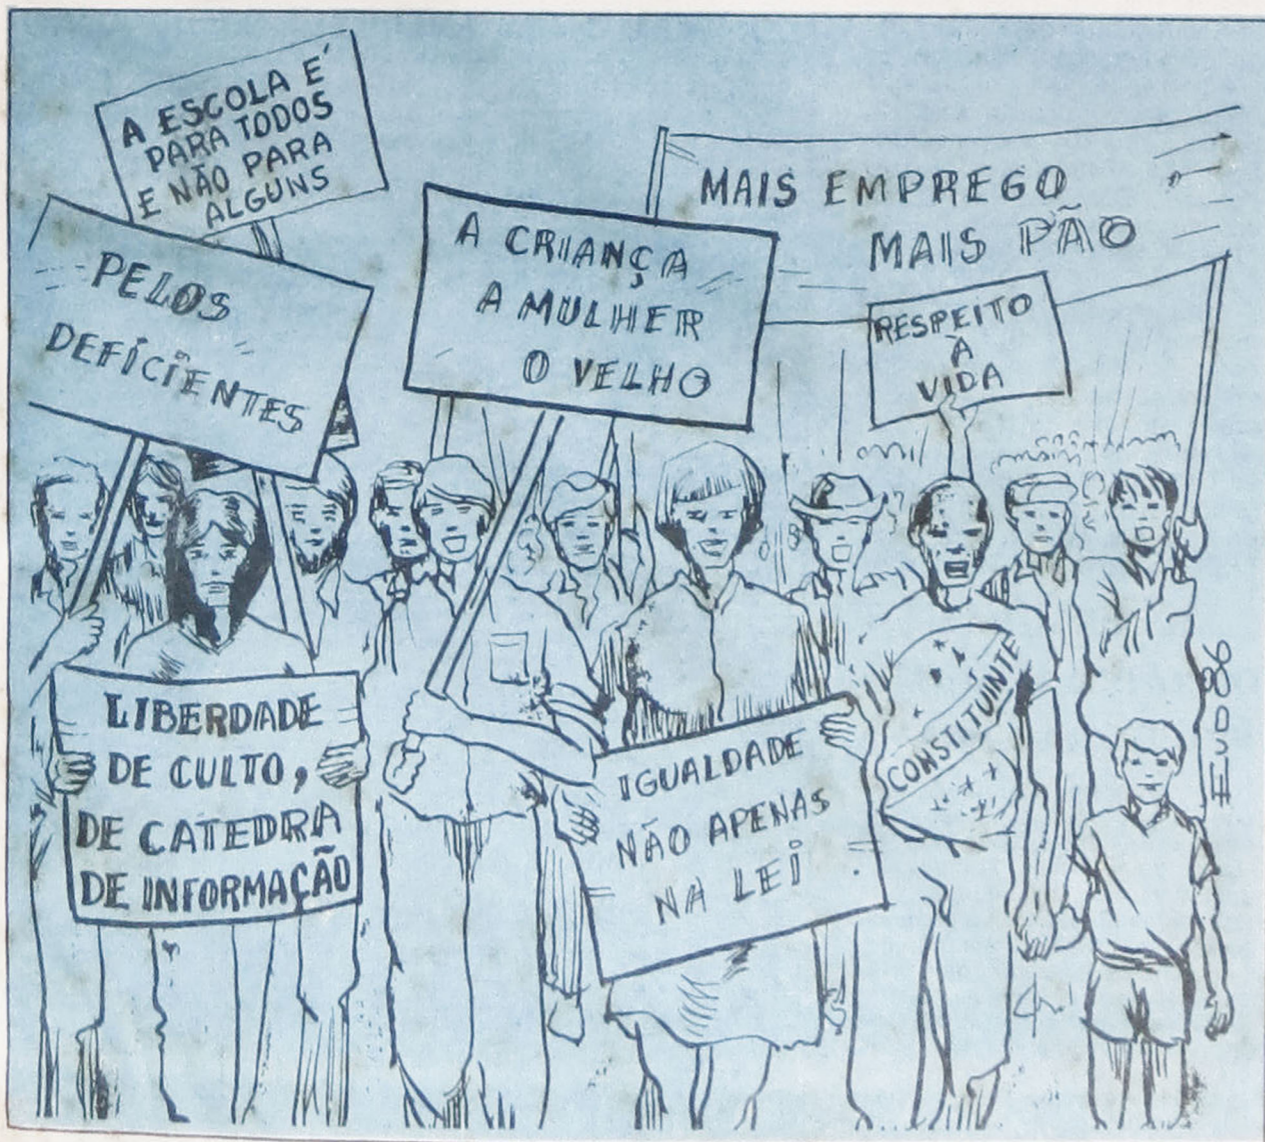 A ESCOLA É
PARA TODOS
E NÃO PARA
ALGUNS
PELOS
DEFICIENTES
A CRIANÇA
A MULHER
O VELHO
MAIS EMPREGO
MAIS PÃO
RESPEITO
À
VIDA
LIBERDADE
DE CULTO,
DE CATEDRA
DE INFORMAÇÃO
IGUALDADE
NÃO APENAS
NA LEI
CONSTITUINTE